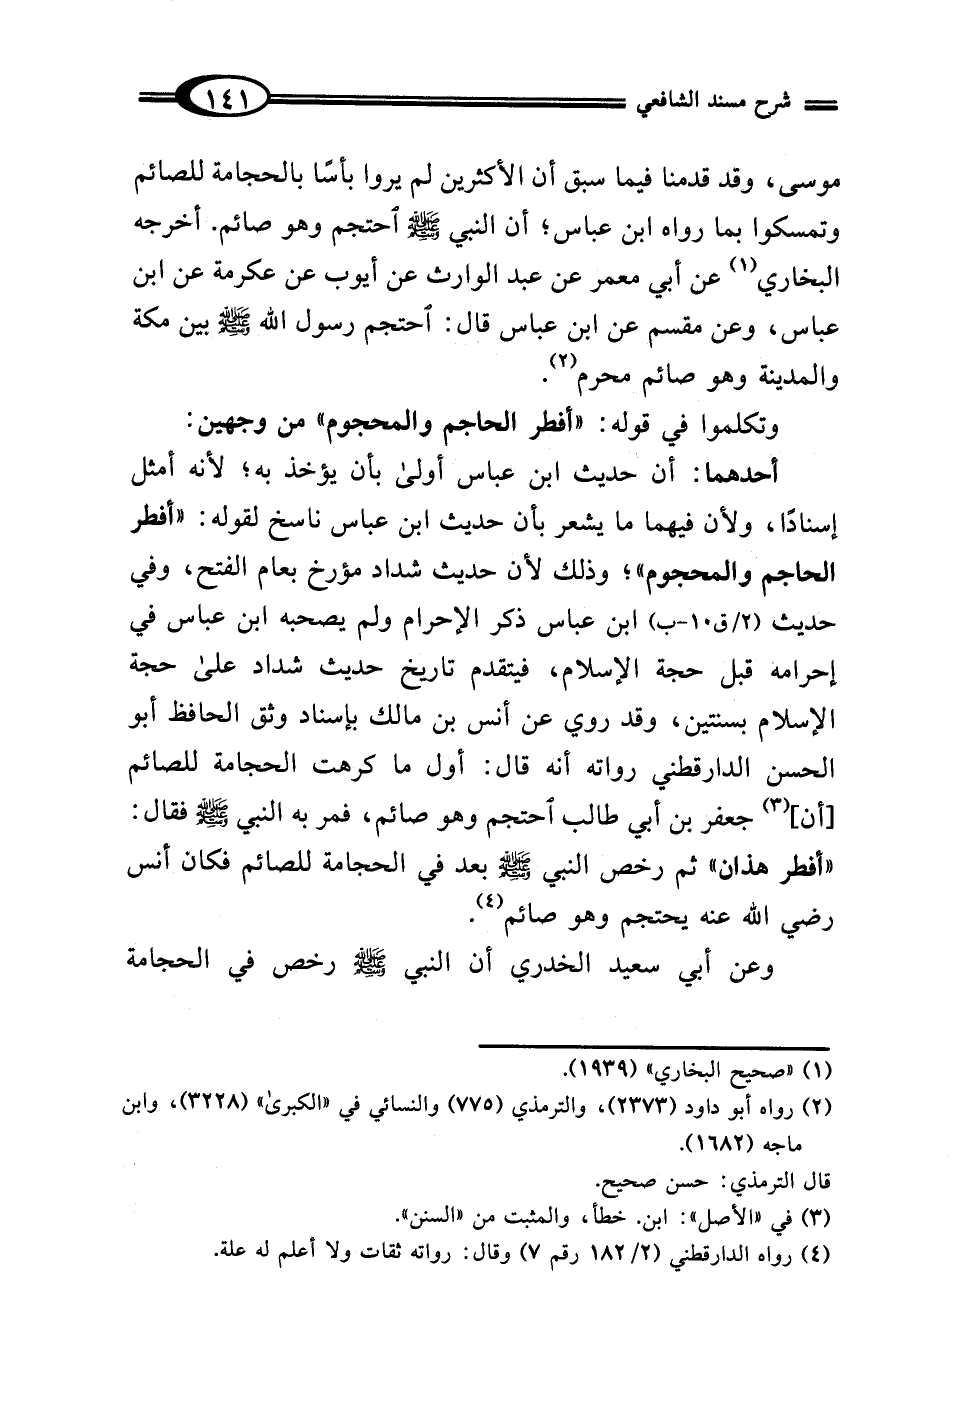 شرح مسند الشافعي ١٤١
موسى، وقد قدمنا فيما سبق أن الأكثرين لم يروا بأسًا بالحجامة للصائم
وتمسكوا بما رواه ابن عباس؛ أن النبي ﷺ ٱحتجم وهو صائم. أخرجه
البخاري(١) عن أبي معمر عن عبد الوارث عن أيوب عن عكرمة عن ابن
عباس، وعن مقسم عن ابن عباس قال: ٱحتجم رسول الله ﷺ بين مكة
والمدينة وهو صائم محرم(٢).
وتكلموا في قوله: «أفطر الحاجم والمحجوم» من وجهين:
أحدهما: أن حديث ابن عباس أولىٰ بأن يؤخذ به؛ لأنه أمثل
إسنادًا، ولأن فيهما ما يشعر بأن حديث ابن عباس ناسخ لقوله: «أفطر
الحاجم والمحجوم»؛ وذلك لأن حديث شداد مؤرخ بعام الفتح، وفي
حديث (٢/ق١٠-ب) ابن عباس ذكر الإحرام ولم يصحبه ابن عباس في
إحرامه قبل حجة الإسلام، فيتقدم تاريخ حديث شداد علىٰ حجة
الإسلام بسنتين، وقد روي عن أنس بن مالك بإسناد وثق الحافظ أبو
الحسن الدارقطني رواته أنه قال: أول ما كرهت الحجامة للصائم
[أن](٣) جعفر بن أبي طالب ٱحتجم وهو صائم، فمر به النبي ﷺ فقال:
«أفطر هذان» ثم رخص النبي ﷺ بعد في الحجامة للصائم فكان أنس
رضي الله عنه يحتجم وهو صائم(٤).
وعن أبي سعيد الخدري أن النبي ﷺ رخص في الحجامة
(١) «صحيح البخاري» (١٩٣٩).
(٢) رواه أبو داود (٢٣٧٣)، والترمذي (٧٧٥) والنسائي في «الكبرىٰ» (٣٢٢٨)، وابن
ماجه (١٦٨٢).
قال الترمذي: حسن صحيح.
(٣) في «الأصل»: ابن. خطأ، والمثبت من «السنن».
(٤) رواه الدارقطني (٢/ ١٨٢ رقم ٧) وقال: رواته ثقات ولا أعلم له علة.